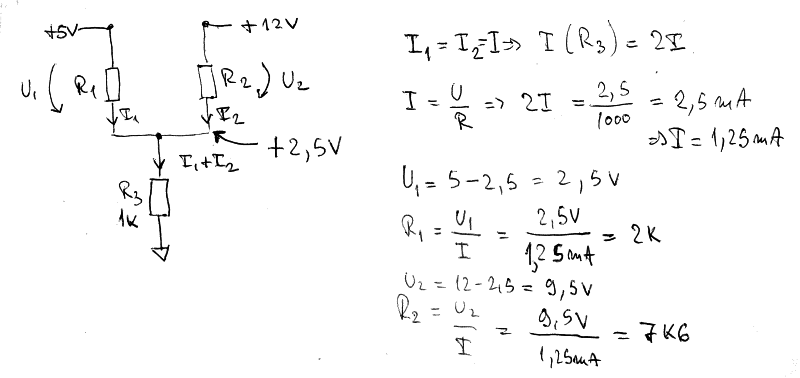 +5V
+12V
U₁
R₁
R₂
U₂
I₁
I₂
+2,5V
I₁+I₂
R₃
1K
I₁ = I₂ = I => I (R₃) = 2I
I = U/R => 2I = 2,5/1000 = 2,5 mA
=> I = 1,25 mA
U₁ = 5 - 2,5 = 2,5V
R₁ = U₁/I = 2,5V/1,25mA = 2K
U₂ = 12 - 2,5 = 9,5V
R₂ = U₂/I = 9,5V/1,25mA = 7K6